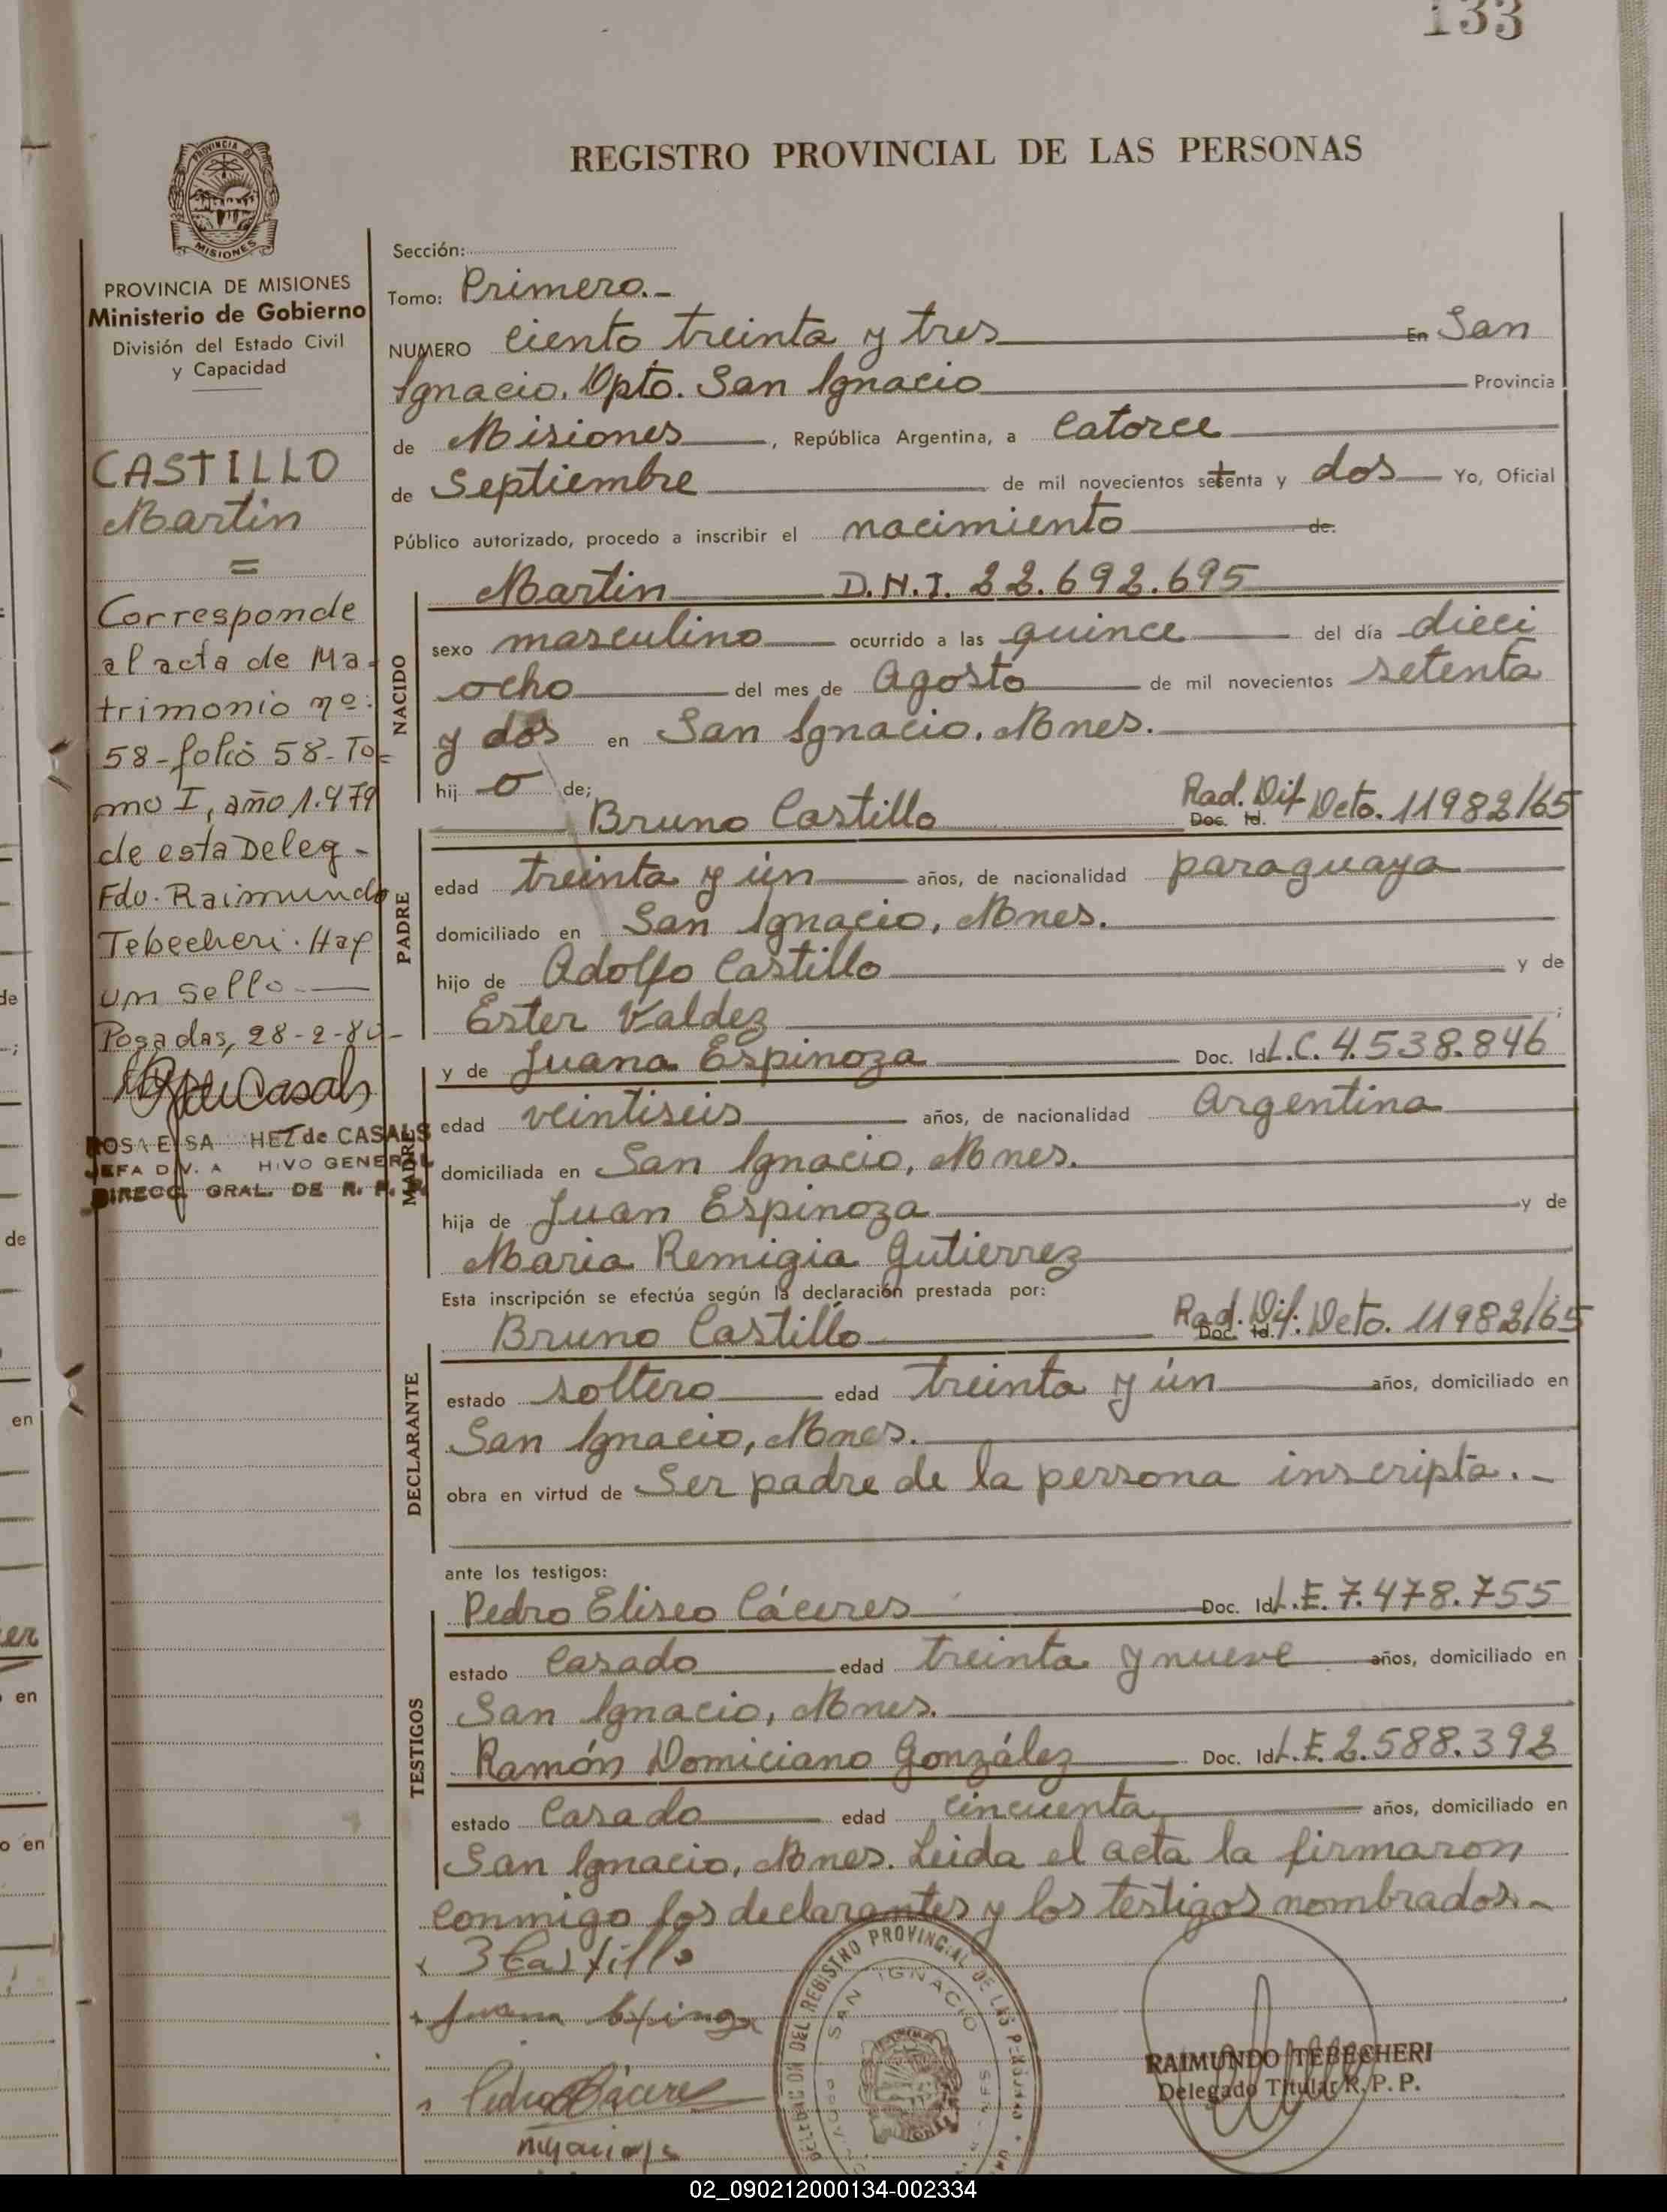 133
REGISTRO PROVINCIAL DE LAS PERSONAS
PROVINCIA DE
MISIONES
PROVINCIA DE MISIONES
Ministerio de Gobierno
División del Estado Civil
y Capacidad
CASTILLO
Martin
=
Corresponde
al acta de Ma-
trimonio nº:
58-folio 58-To-
mo I, año 1.979
de esta Deleg-
Fdo. Raimundo
Tebecheri. Hay
un sello
Posadas, 28-2-80-
de CASALS
DIRECC. GRAL. DE R. P. P.
Sección:
Tomo: Primero.-
NUMERO ciento treinta y tres En San
Ignacio. Dpto. San Ignacio Provincia
de Misiones, República Argentina, a Catorce
de Septiembre de mil novecientos setenta y dos Yo, Oficial
Público autorizado, procedo a inscribir el nacimiento de.
NACIDO
Martin D.N.I. 22.692.695
sexo masculino ocurrido a las quince del día dieci
ocho del mes de Agosto de mil novecientos setenta
y dos en San Ignacio, Mnes.
hijo de;
PADRE
Bruno Castillo Doc. Id. Rad. Dif Dcto. 11982/65
edad treinta y ún años, de nacionalidad paraguaya
domiciliado en San Ignacio, Mnes.
hijo de Adolfo Castillo y de
Ester Valdez;
MADRE
y de Juana Espinoza Doc. Id L.C. 4.538.846
edad veintiseis años, de nacionalidad Argentina
domiciliada en San Ignacio, Mnes.
hija de Juan Espinoza y de
Maria Remigia Gutierrez
Esta inscripción se efectúa según la declaración prestada por:
DECLARANTE
Bruno Castillo Doc. Id. Rad. Dif. Dcto. 11982/65
estado soltero edad treinta y ún años, domiciliado en
San Ignacio, Mnes.
obra en virtud de Ser padre de la persona inscripta.-
ante los testigos:
TESTIGOS
Pedro Eliseo Cáceres Doc. Id L.E. 7.478.755
estado Casado edad treinta y nueve años, domiciliado en
San Ignacio, Mnes.
Ramón Domiciano González Doc. Id L.E. 2.588.392
estado Casado edad cincuenta años, domiciliado en
San Ignacio, Mnes. Leida el acta la firmaron
conmigo los declarantes y los testigos nombrados.-
Castillo
Juana Espinoza
Pedro Cáceres
DELEGACION DEL REGISTRO PROVINCIAL DE LAS PERSONAS
SAN IGNACIO
RAIMUNDO TEBECHERI
Delegado Titular R. P. P.
de
de
en
en
o en
02_090212000134-002334